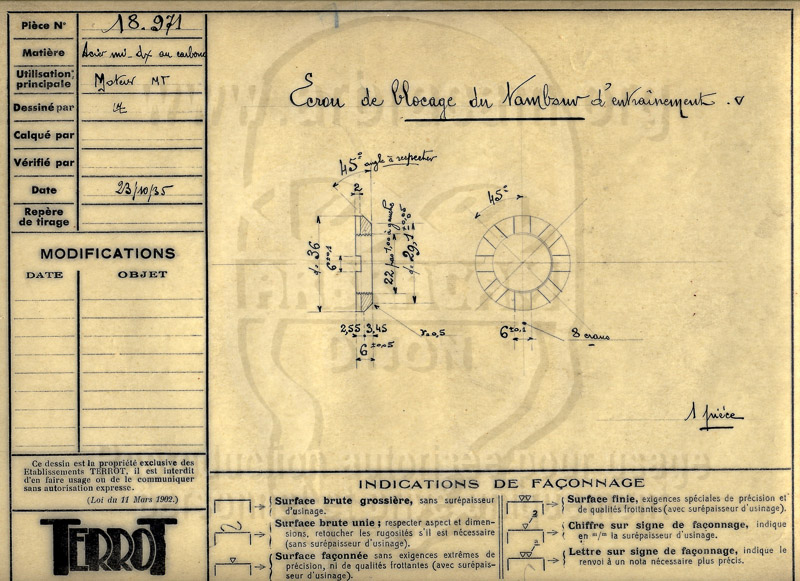 Pièce N° 18.971
Matière Acier mi-dx au carbone
Utilisation principale Moteur MT
Dessiné par
Calqué par
Vérifié par
Date 23/10/35
Repère de tirage
MODIFICATIONS
DATE OBJET
Ce dessin est la propriété exclusive des
Etablissements TERROT, il est interdit
d'en faire usage ou de le communiquer
sans autorisation expresse.
(Loi du 11 Mars 1902.)
TERROT
Ecrou de blocage du Tambour d'entraînement.
45° angle à respecter
2
d. 36
6
22 pas 1,00 à gauche
d. 29,1 ±0,05
2,55 3,45
6 ±0,05
r=0,5
45°
6 ±0,1
8 crans
1 pièce
INDICATIONS DE FAÇONNAGE
Surface brute grossière, sans surépaisseur
d'usinage.
Surface brute unie; respecter aspect et dimen-
sions, retoucher les rugosités s'il est nécessaire
(sans surépaisseur d'usinage).
Surface façonnée sans exigences extrêmes de
précision, ni de qualités frottantes (avec surépais-
seur d'usinage).
Surface finie, exigences spéciales de précision et
de qualités frottantes (avec surépaisseur d'usinage).
2
Chiffre sur signe de façonnage, indique
en m/m la surépaisseur d'usinage.
a
Lettre sur signe de façonnage, indique le
renvoi à un nota nécessaire plus précis.